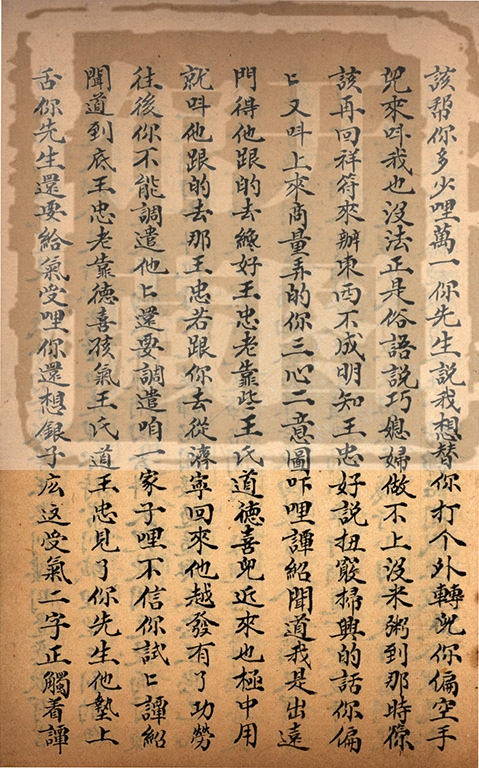 該帮你多少哩萬一你先生說我想替你打个外轉兒你偏空手
兒來呌我也沒法正是俗語說巧媳婦做不上沒米粥到那時你
該再回祥符來辦東西不成明知王忠好說扭竅掃興的話你偏
匕又呌上來商量弄的你三心二意圖吓哩譚紹聞道我是出遠
門得他跟的去纔好王忠老靠些王氏道德喜兒近來也極中用
就呌他跟的去那王忠若跟你去從濟寧回來他越發有了功勞
往後你不能調遣他匕還要調遣咱一家子哩不信你試匕譚紹
聞道到底王忠老靠德喜孩氣王氏道王忠見了你先生他墊上
舌你先生還要給氣受哩你還想銀子庅这受氣二字正觸着譚